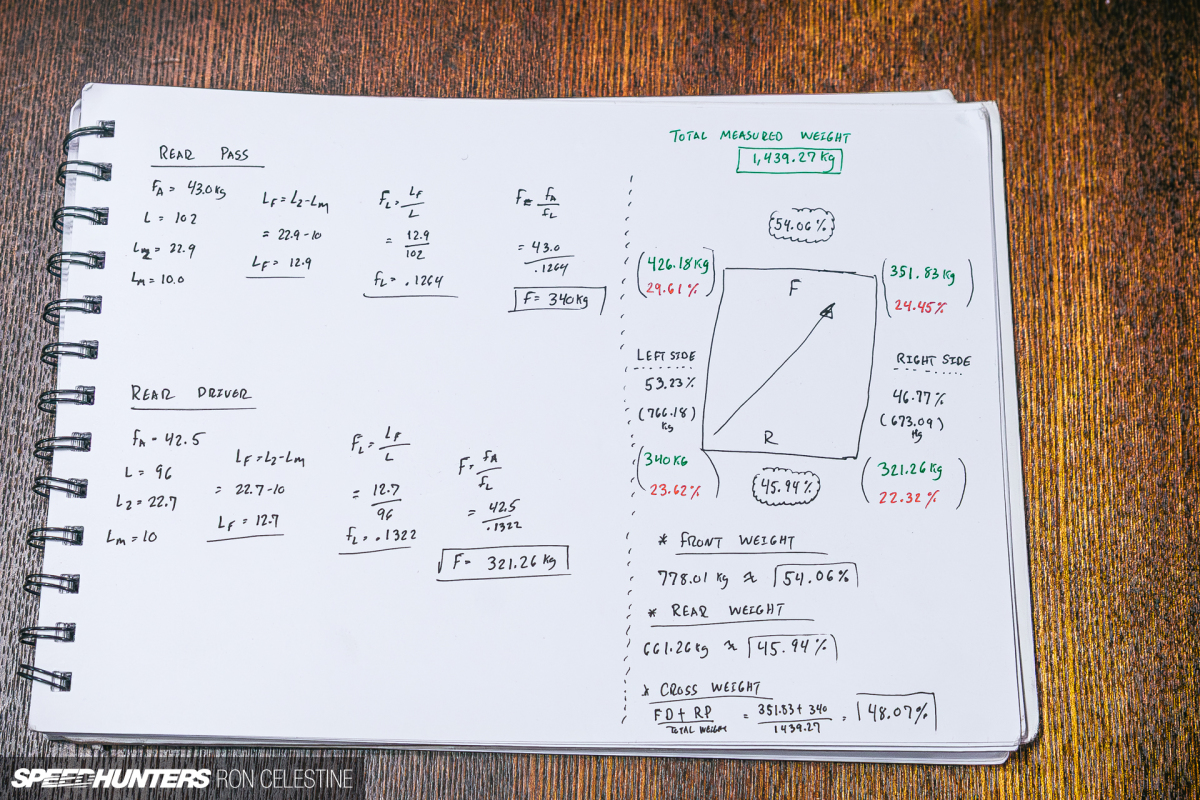 REAR PASS
FA = 43.0kg
L = 102
L2 = 22.9
Lm = 10.0
LF = L2-Lm
= 22.9-10
LF = 12.9
FL = LF/L
= 12.9/102
fL = .1264
F = fA/fL
= 43.0/.1264
F = 340kg
REAR DRIVER
fA = 42.5
L = 96
L2 = 22.7
Lm = 10
LF = L2-LM
= 22.7-10
LF = 12.7
FL = LF/L
= 12.7/96
fL = .1322
F = fA/fL
= 42.5/.1322
F = 321.26 kg
TOTAL MEASURED WEIGHT
1,439.27 kg
54.06%
426.18 kg
29.61%
F
351.83 kg
24.45%
LEFT SIDE
53.23%
(766.18)
kg
RIGHT SIDE
46.77%
(673.09)
kg
R
340 KG
23.62%
45.94%
321.26 kg
22.32%
* FRONT WEIGHT
778.01 kg ≈ 54.06%
* REAR WEIGHT
661.26 kg ≈ 45.94%
* CROSS WEIGHT
FD + RP / TOTAL WEIGHT = 351.83 + 340 / 1439.27 = 48.07%
SPEEDHUNTERS RON CELESTINE